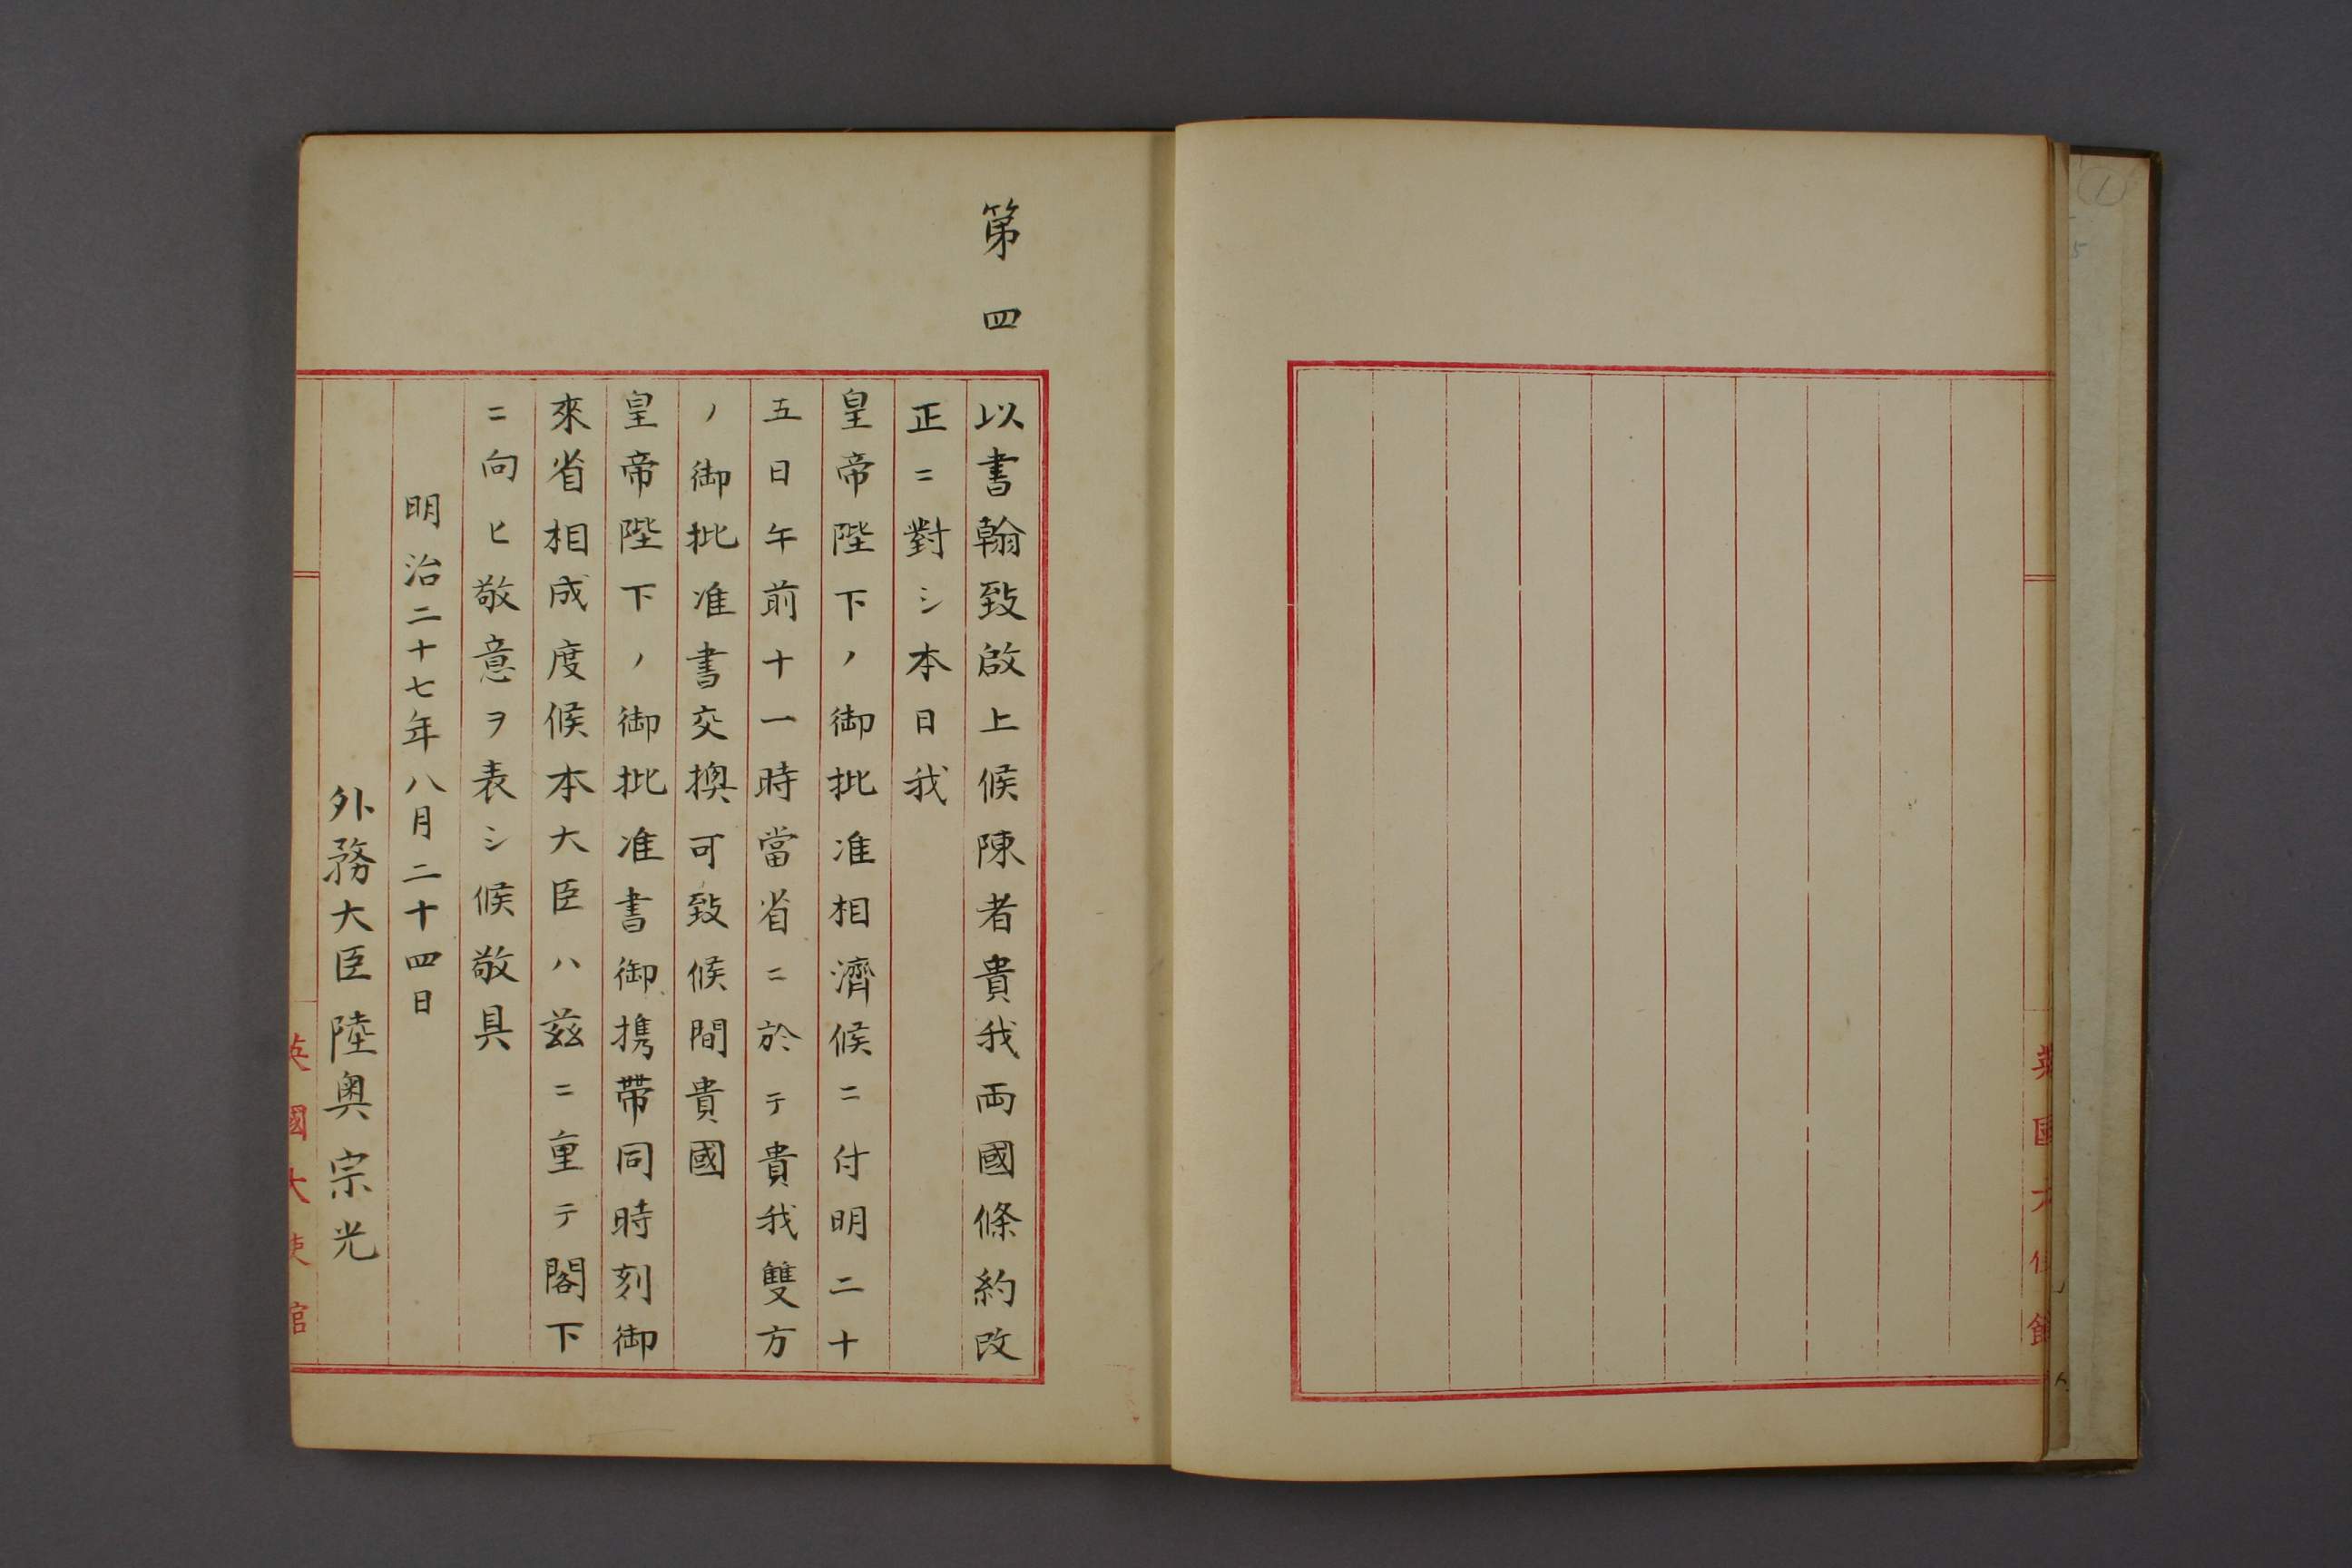 第四
以書翰致啟上候陳者貴我両國條約改
正ニ對シ本日我
皇帝陛下ノ御批准相濟候ニ付明二十
五日午前十一時當省ニ於テ貴我雙方
ノ御批准書交換可致候間貴國
皇帝陛下ノ御批准書御携帶同時刻御
來省相成度候本大臣ハ茲ニ重テ閣下
ニ向ヒ敬意ヲ表シ候敬具
明治二十七年八月二十四日
外務大臣陸奥宗光
英國大使館